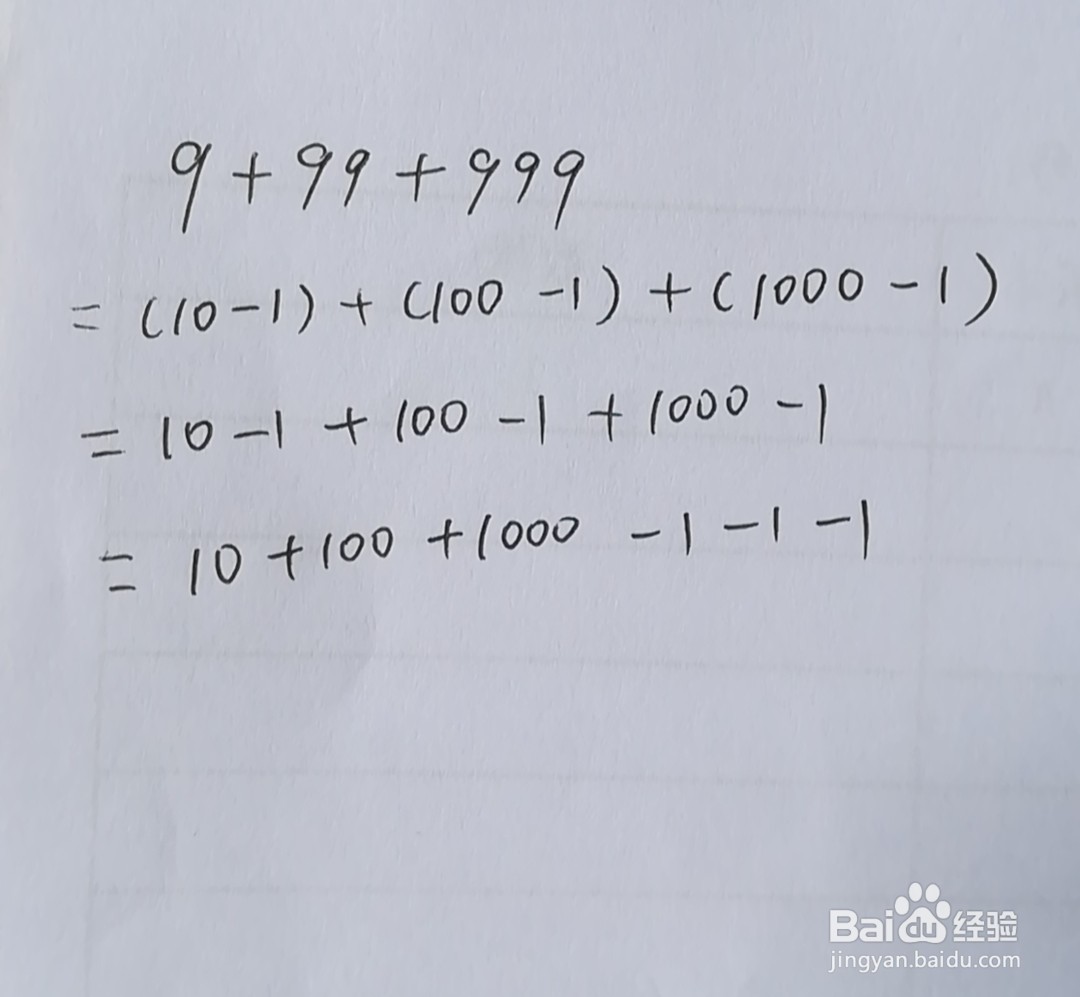 9+99+999
=(10-1)+(100-1)+(1000-1)
=10-1+100-1+1000-1
=10+100+1000-1-1-1
Baidu经验
jingyan.baidu.com